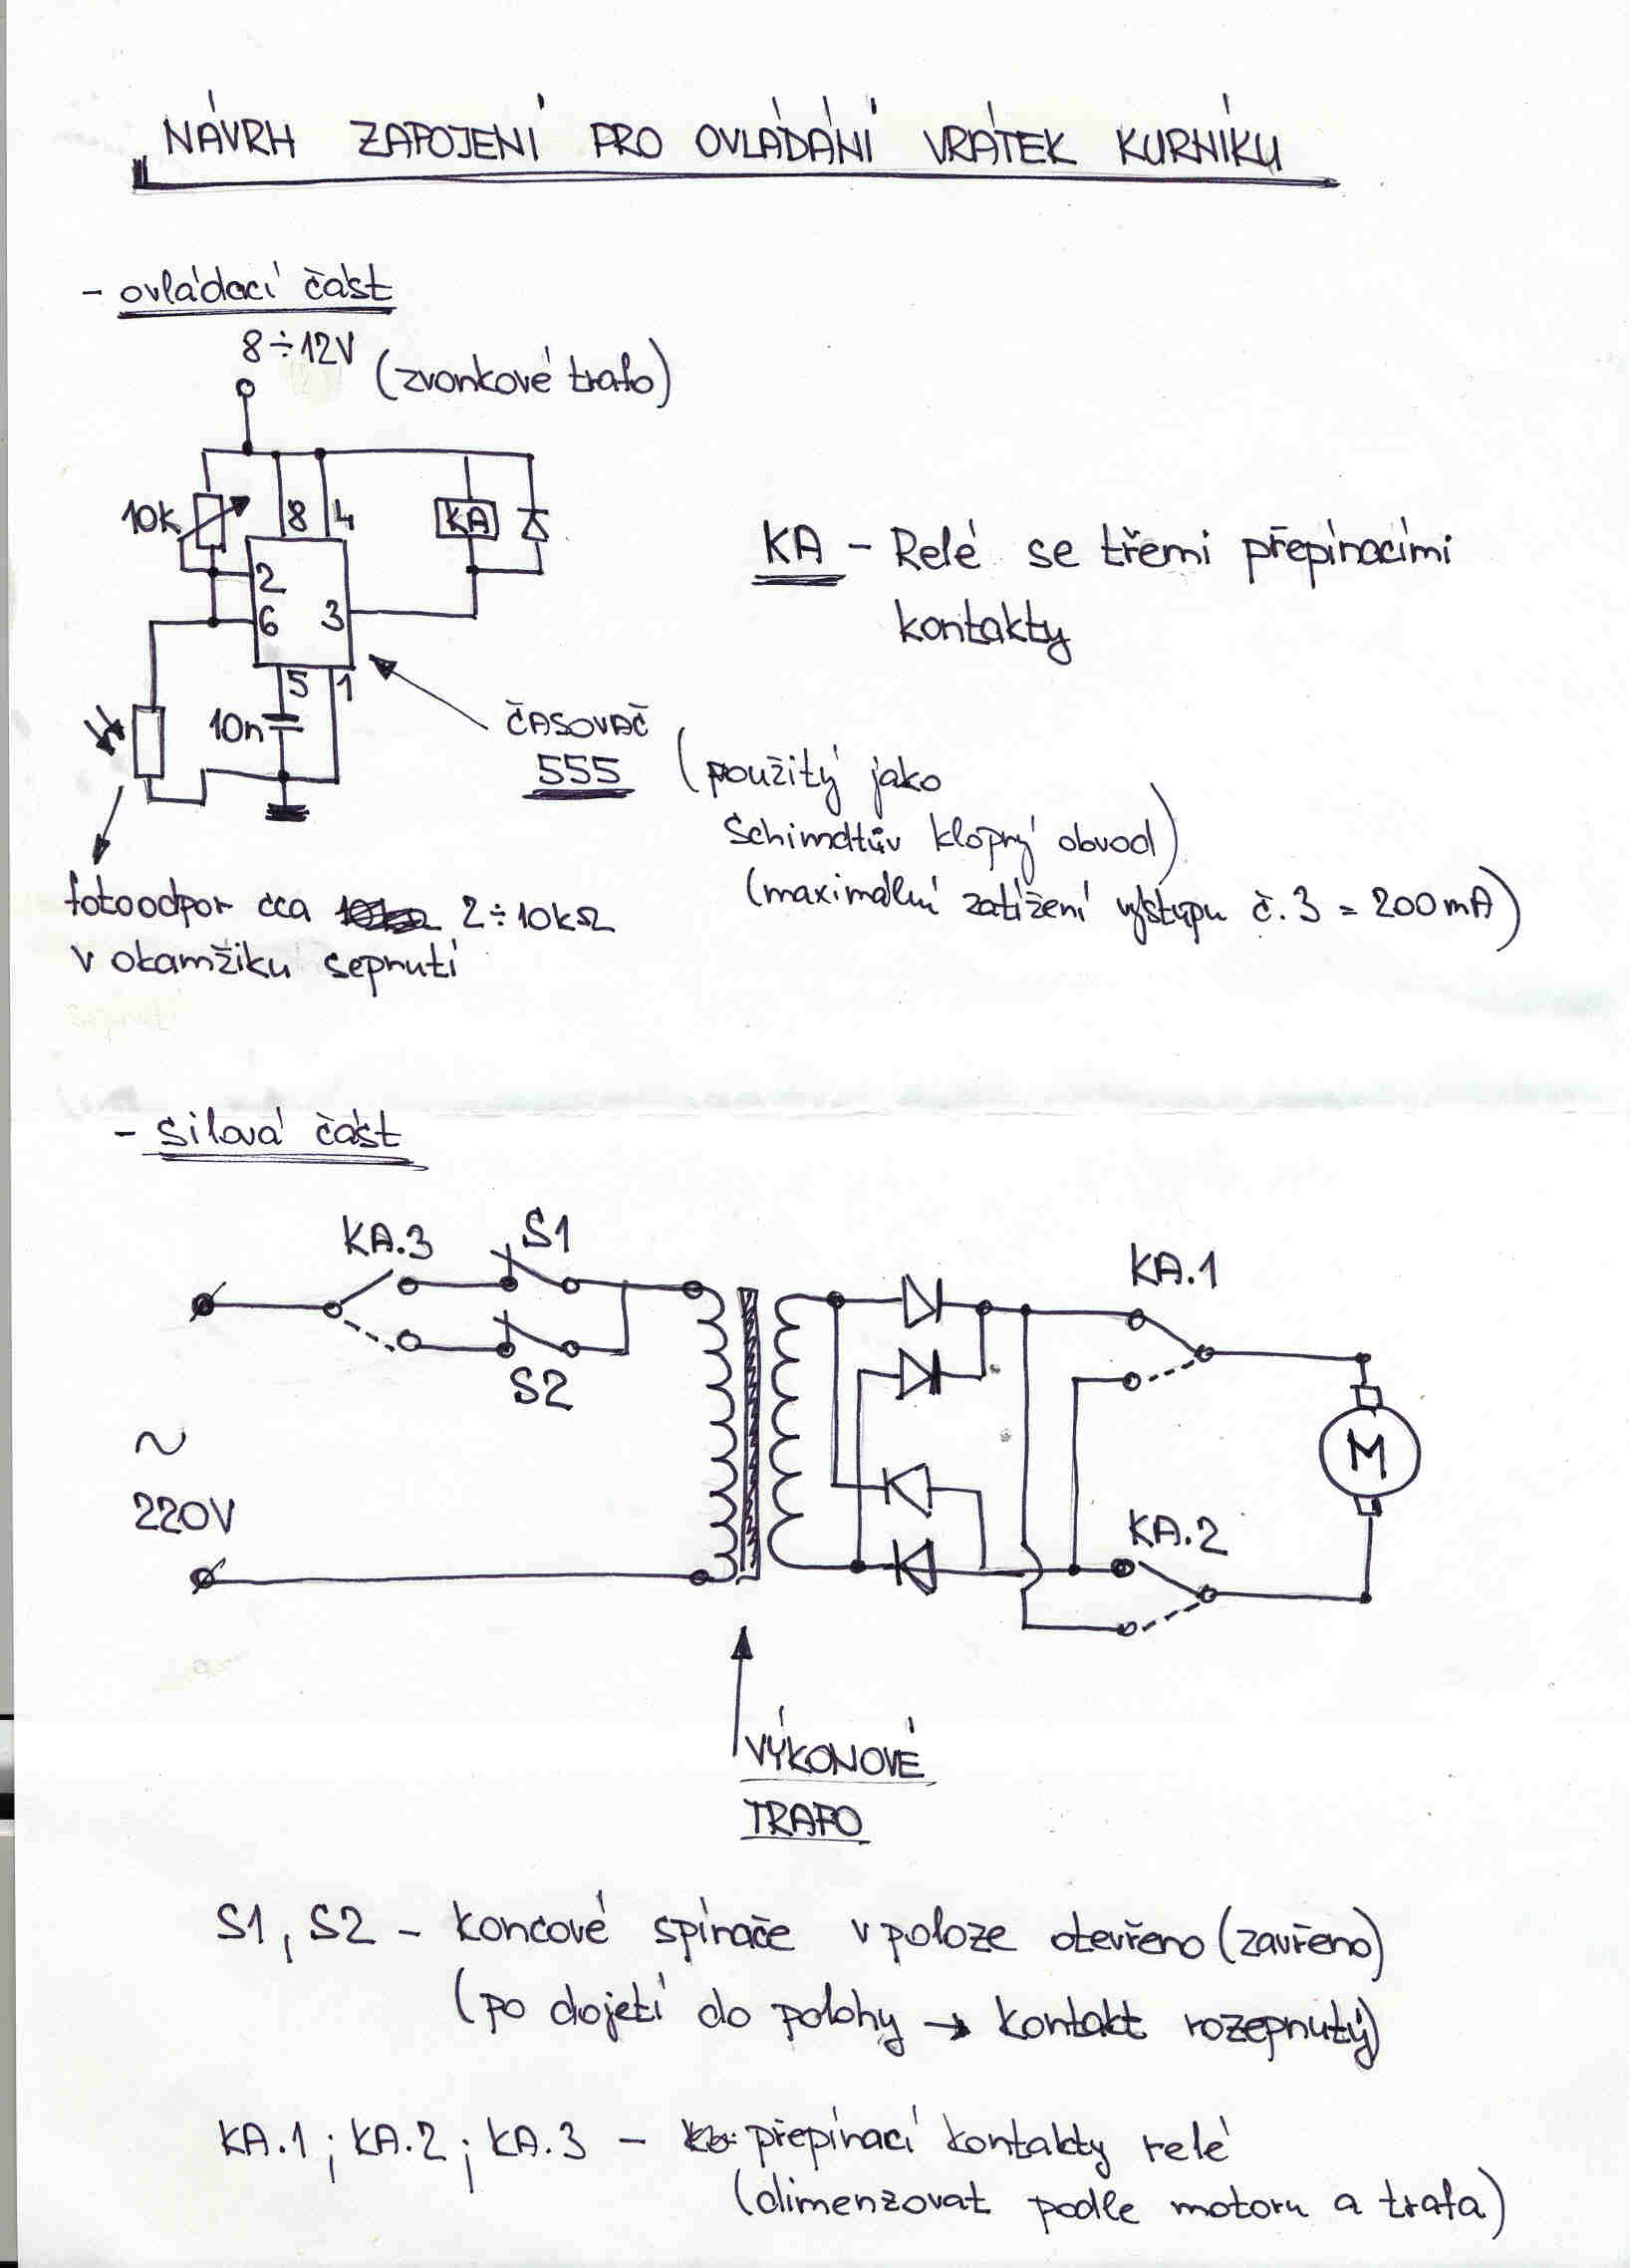 NÁVRH ZAPOJENÍ PRO OVLÁDÁNÍ VRÁTEK KURNÍKU
- ovládací část
8÷12V (zvonkové trafo)
10k
8
4
KA
2
6
3
5
1
10n
KA - Relé se třemi přepínacími
kontakty
ČASOVAČ
555 (použitý jako
Schimdtův klopný obvod)
(maximální zatížení výstupu č.3 = 200mA)
fotoodpor cca 2÷10kΩ
v okamžiku sepnutí
- silová část
KA.3
S1
S2
~
220V
KA.1
M
KA.2
VÝKONOVÉ
TRAFO
S1, S2 - koncové spínače v poloze otevřeno (zavřeno)
(po dojetí do polohy → kontakt rozepnutý)
KA.1; KA.2; KA.3 - přepínací kontakty relé
(dimenzovat podle motoru a trafa)